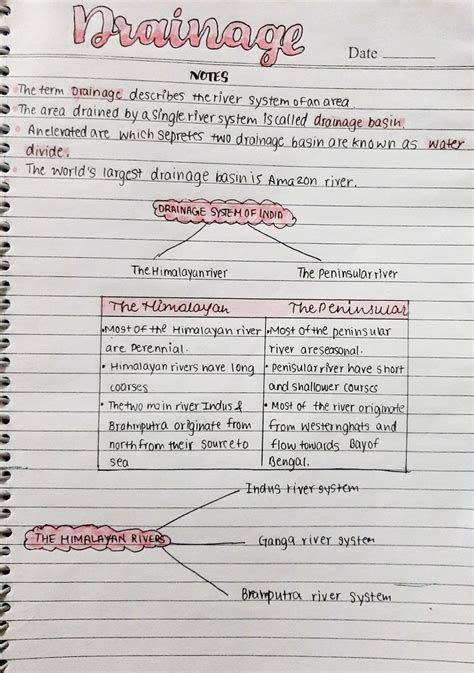 Drainage
Date
NOTES
The term Drainage describes the river system of an area.
The area drained by a single river system is called drainage basin.
An elerated are which sepretes two drainage basin are known as water
divide.
The world's largest drainage basin is Amazon river.
DRAINAGE SYSTEM OF INDIA
The Himalayan river
The Peninsular river
The Himalayan
The Peninsular
•Most of the Himalayan river
are Perennial.
• Himalayan rivers have long
coarses
•The two main river Indus &
Brahmputra originate from
north from their source to
sea
•Most of the peninsular
river are seasonal.
• Penisular river have short
and shallower courses
• Most of the river originate
from western ghats and
flow towards Bay of
Bengal.
THE HIMALAYAN RIVERS
Indus river system
Ganga river system
Brahmputra river system